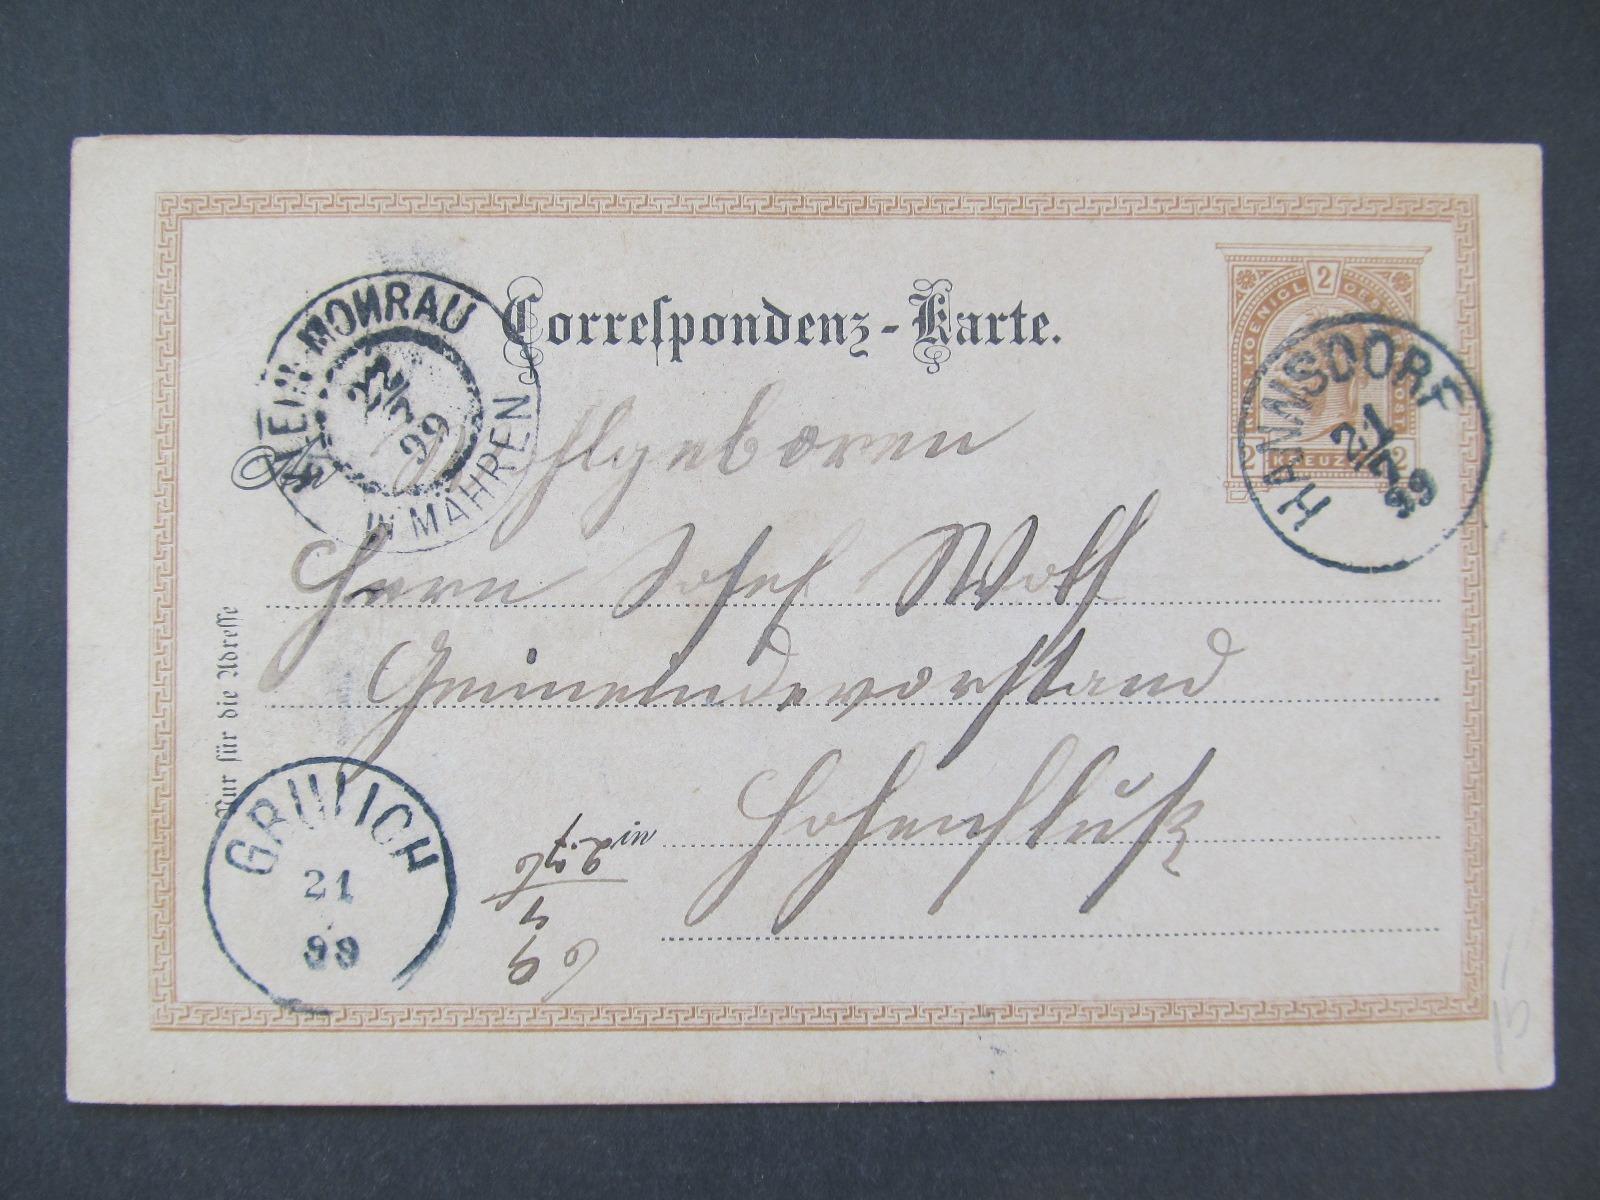 Correspondenz-Karte.
KLEIN-MOHRAU
22/7
99
IN MÄHREN
2
KAIS. KOENIGL. OESTERR. POST
2 KREUZER 2
HANNSDORF
21/7
99
An Wohlgeboren
Herrn Josef Wolf
Gemeindevorstand
in Hohenfluß
Nur für die Adresse
GRULICH
21
99
15